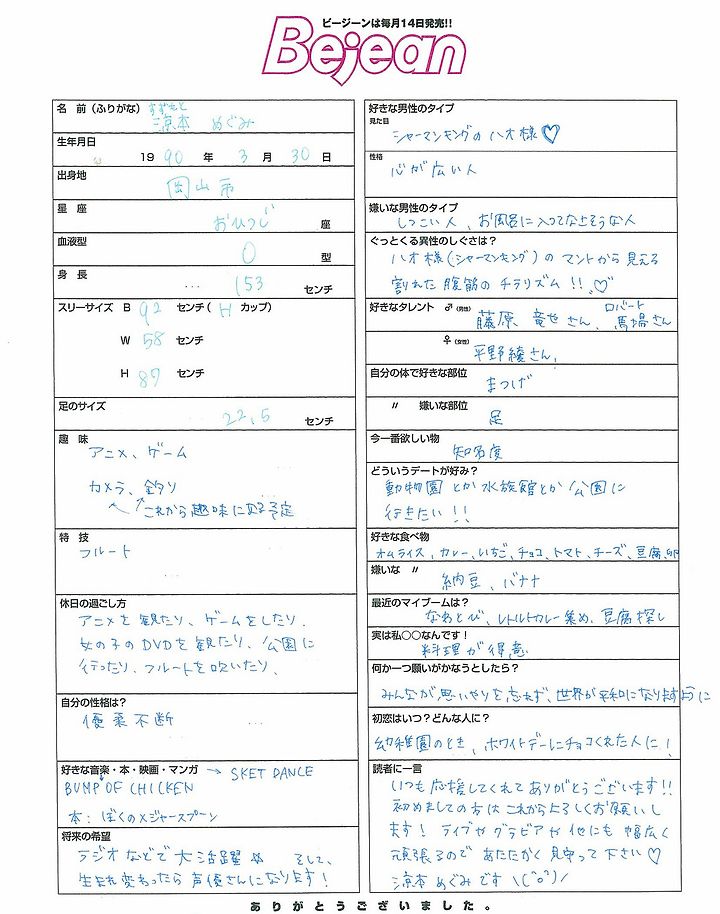 ビージーンは毎月14日発売!!
Bejean
名 前 (ふりがな) すずもと
涼本 めぐみ
生年月日
19 90 年 3 月 30 日
出身地
岡山市
星 座
おひつじ 座
血液型
O 型
身 長
153 センチ
スリーサイズ B 92 センチ( H カップ)
W 58 センチ
H 89 センチ
足のサイズ
22.5 センチ
趣 味
アニメ、ゲーム
カメラ、釣り
これから趣味になる予定
特 技
フルート
休日の過ごし方
アニメを観たり、ゲームをしたり、
女の子のDVDを観たり、公園に
行ったり、フルートを吹いたり、
自分の性格は?
優柔不断
好きな音楽・本・映画・マンガ → SKET DANCE
BUMP OF CHICKEN
本: ぼくのメジャースプーン
将来の希望
ラジオなどで大活躍☆ そして、
生まれ変わったら声優さんになります!
好きな男性のタイプ
見た目
シャーマンキングのハオ様♡
性格
心が広い人
嫌いな男性のタイプ
しつこい人、お風呂に入ってなさそうな人
ぐっとくる異性のしぐさは?
ハオ様(シャーマンキング)のマントから見える
割れた腹筋のチラリズム!!♡
好きなタレント ♂(男性) 藤原 竜也さん、ロバート馬場さん
♀(女性)
平野綾さん、
自分の体で好きな部位
まつげ
〃 嫌いな部位
足
今一番欲しい物
知名度
どういうデートが好み?
動物園とか水族館とか公園に
行きたい!!
好きな食べ物
オムライス、カレー、いちご、チョコ、トマト、チーズ、豆腐、卵
嫌いな 〃
納豆、バナナ
最近のマイブームは?
なわとび、レトルトカレー集め、豆腐探し
実は私○○なんです!
料理が得意
何か一つ願いがかなうとしたら?
みんなが思いやりを忘れず、世界が平和になりますように
初恋はいつ?どんな人に?
幼稚園のとき、ホワイトデーにチョコくれた人に!
読者に一言
いつも応援してくれてありがとうございます!!
初めましての方はこれからよろしくお願いし
ます! ライブやグラビアや他にも幅広く
頑張るのであたたかく見守って下さい♡
涼本めぐみです \(^o^)/
ありがとうございました。